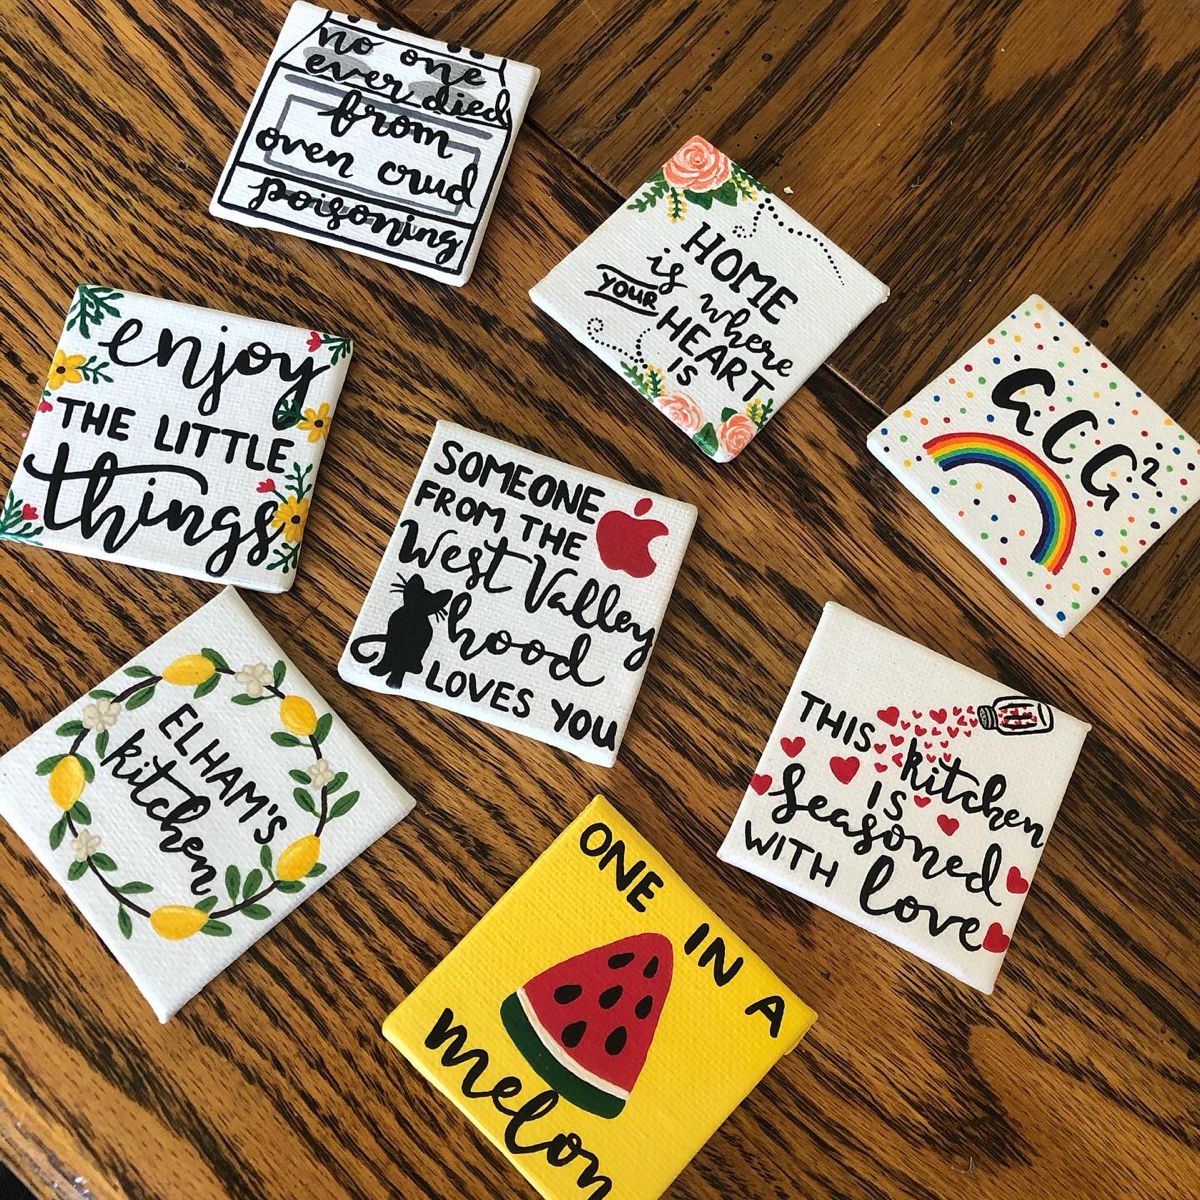 no one
ever died
from
oven crud
poisoning
HOME
is where
YOUR HEART
IS
enjoy
THE LITTLE
things
SOMEONE
FROM THE
West Valley
hood
LOVES YOU
GCG²
ELHAM'S
kitchen
THIS kitchen
IS
seasoned
WITH love
ONE IN A
melon